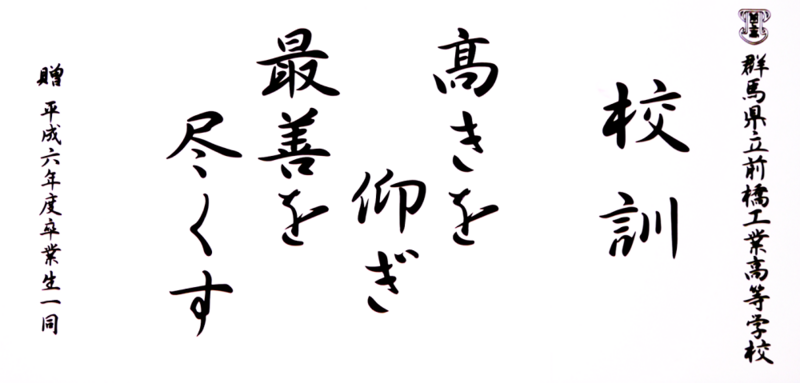 群馬県立前橋工業高等学校
校訓
高きを
仰ぎ
最善を
尽くす
贈 平成六年度卒業生一同